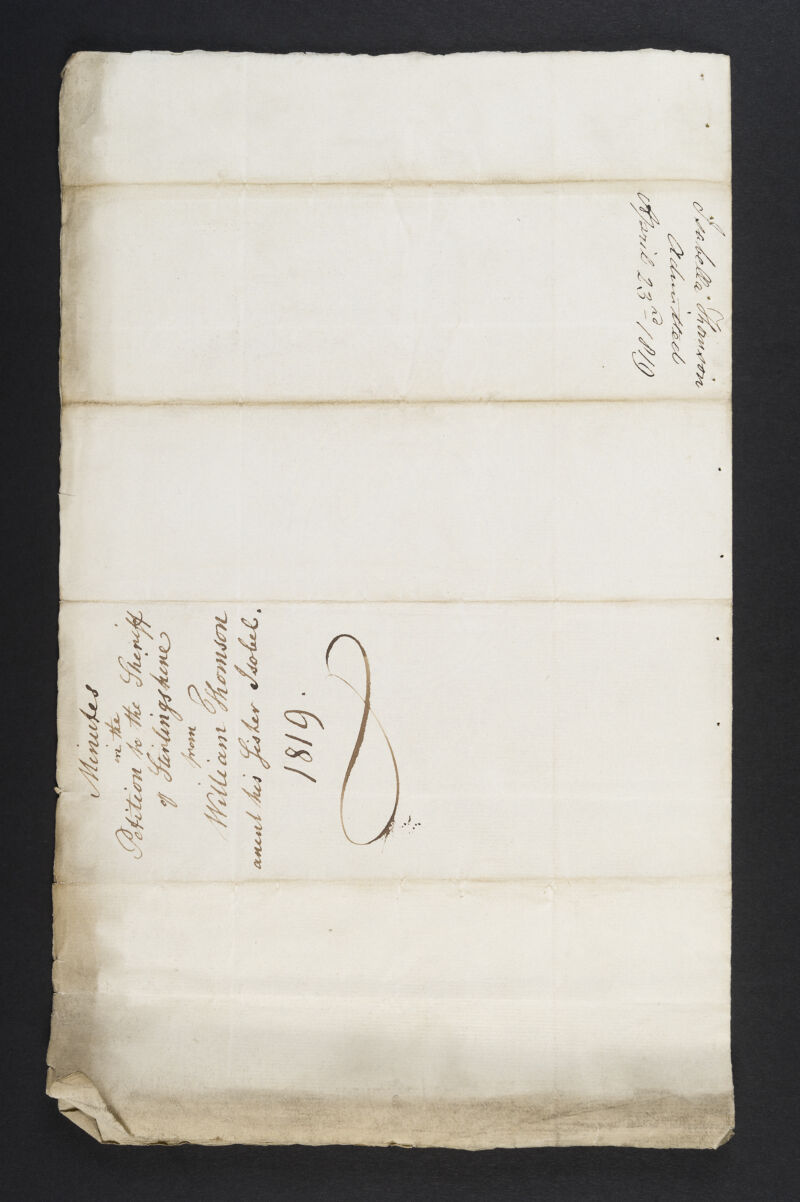 Isabella Thomson
Admitted
April 23rd 1819
Minutes
in the
Petition to the Sheriff
of Stirlingshire
from
William Thomson
anent his Sister Isobel.
1819.